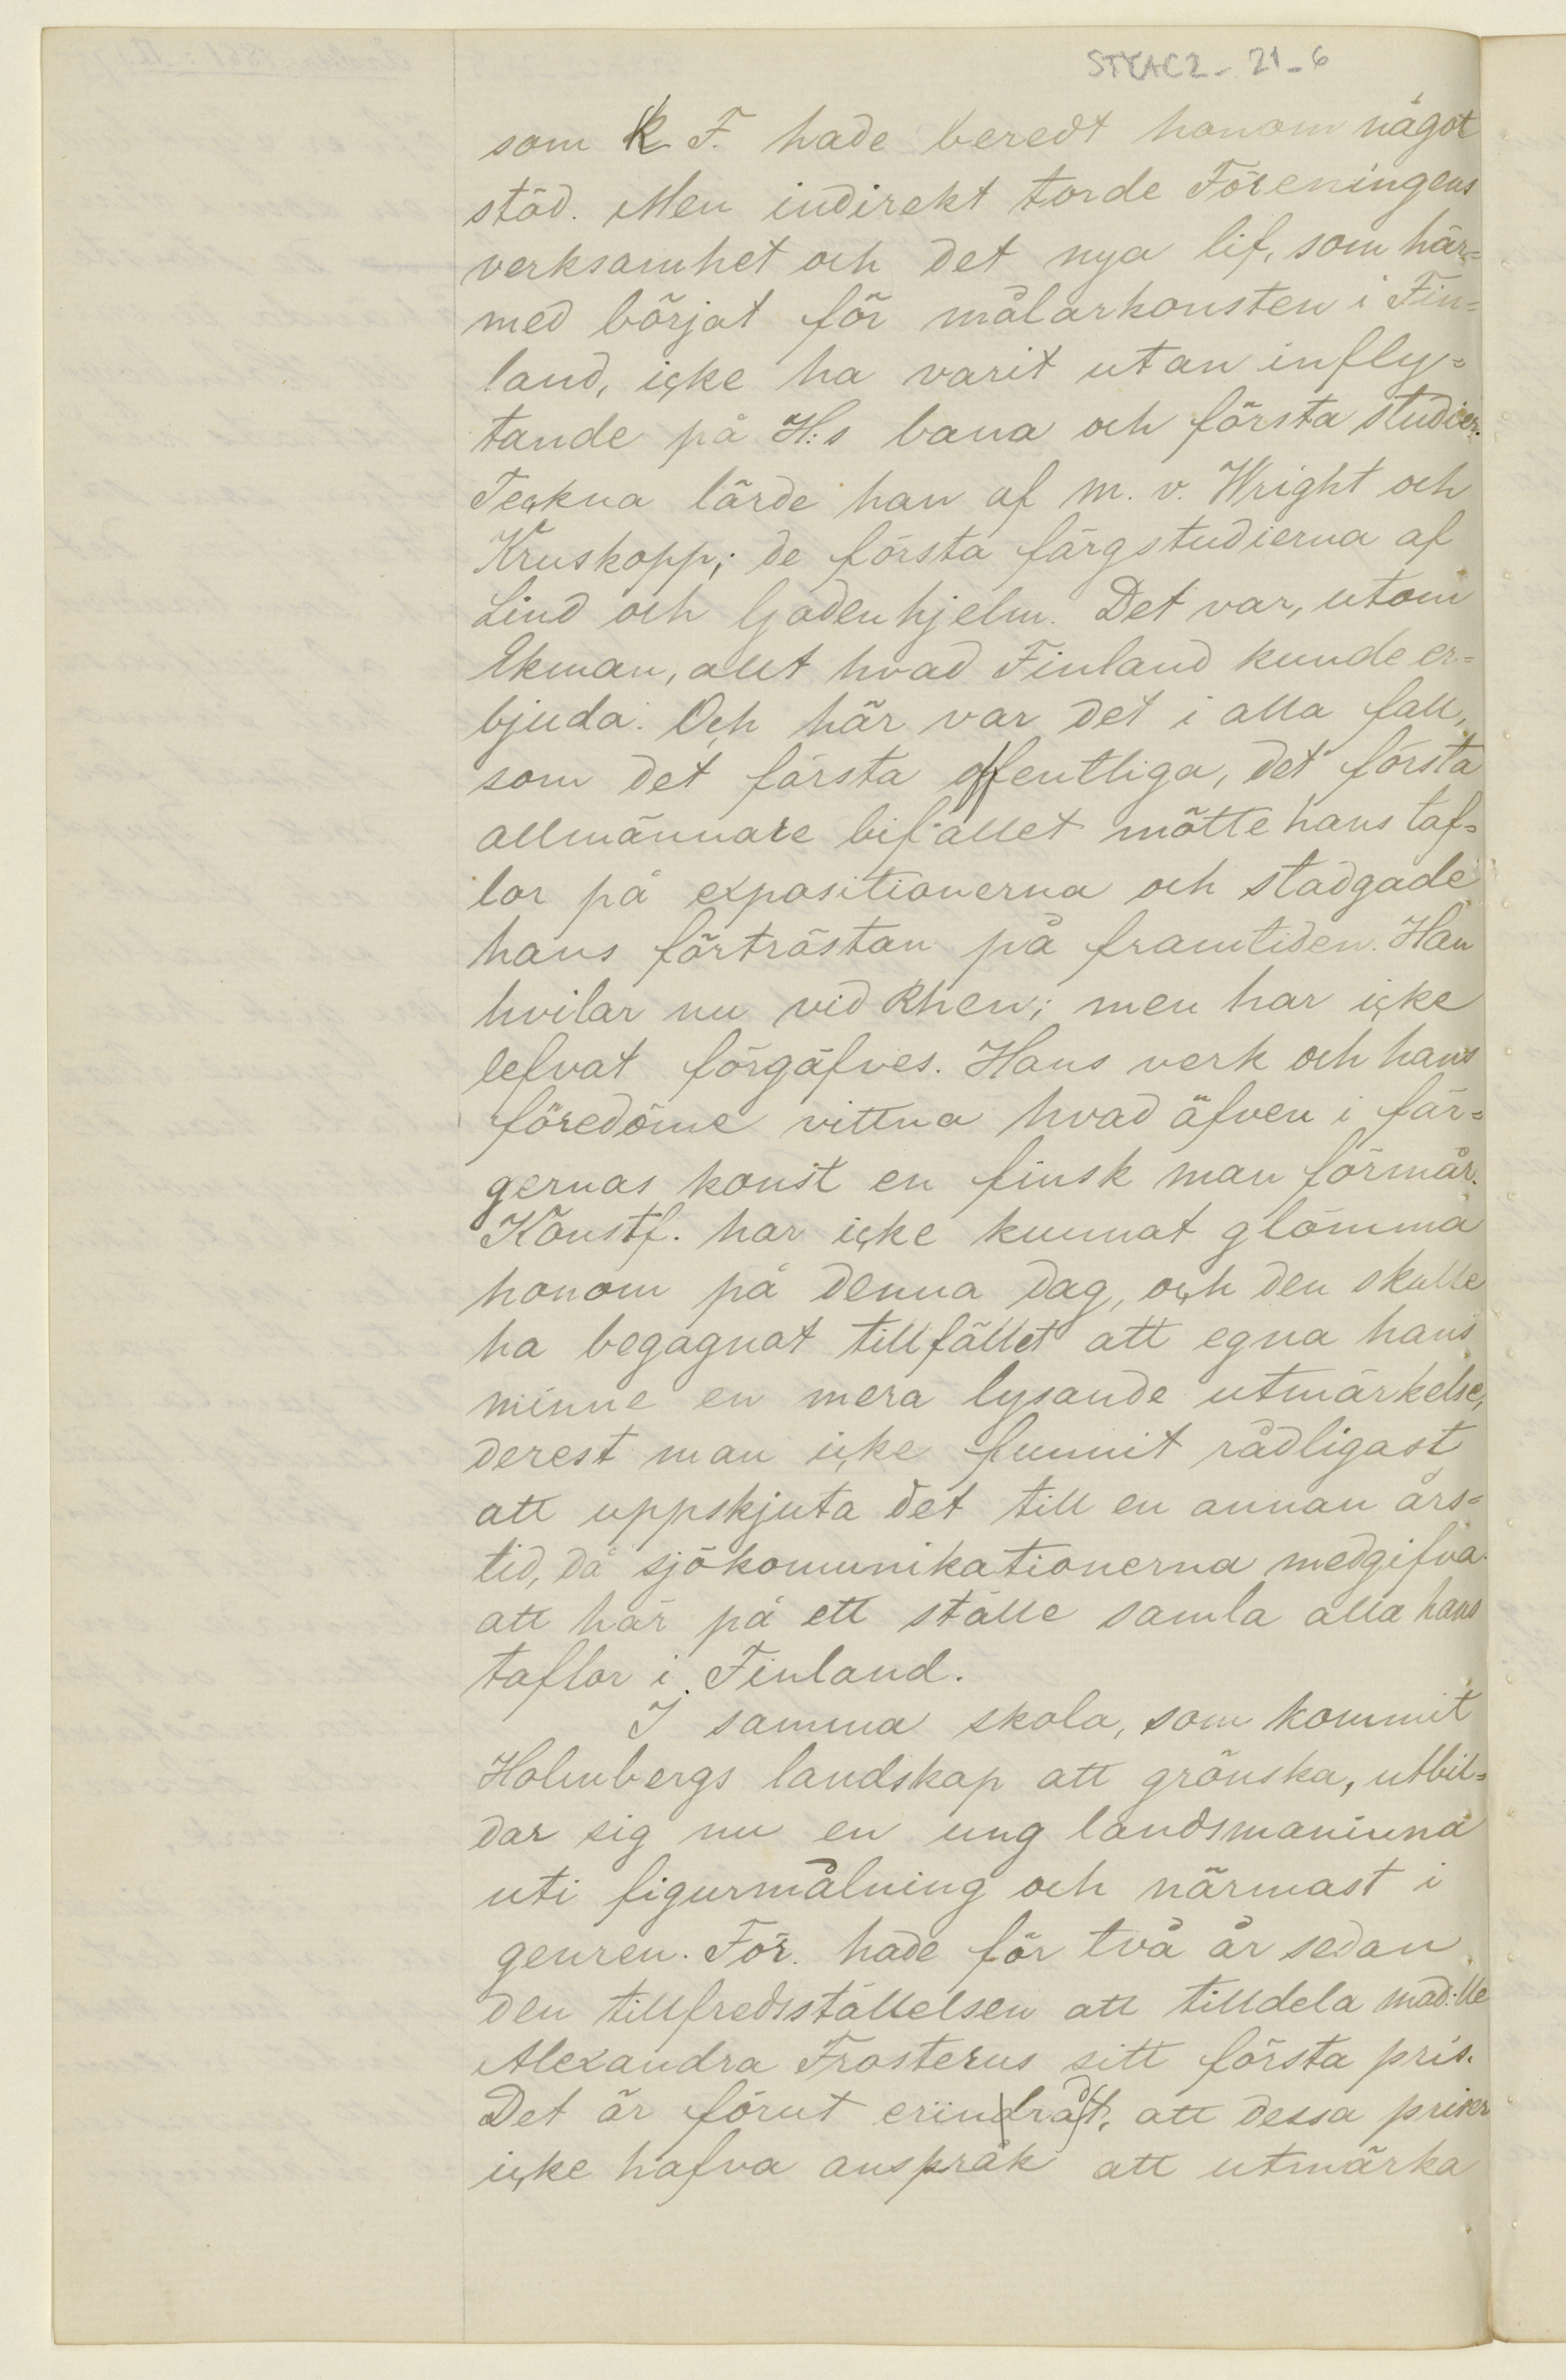 STYAC2_21_6
som K. F. hade beredt honom något
stöd. Men indirekt torde Föreningens
verksamhet och det nya lif, som här=
med börjat för målarkonsten i Fin=
land, icke ha varit utan infly=
tande på H:s bana och första studier.
Teckna lärde han af M. v. Wright och
Kruskopp; de första färgstudierna af
Lind och Godenhjelm. Det var, utom
Ekman, allt hvad Finland kunde er=
bjuda. Och här var det i alla fall,
som det första offentliga, det första
allmännare bifallet mötte hans taf=
lor på expositionerna och stadgade
hans förtröstan på framtiden. Han
hvilar nu vid Rhen; men har icke
lefvat förgäfves. Hans verk och hans
föredöme vittna hvad äfven i fär=
gernas konst en finsk man förmår.
Konstf. har icke kunnat glömma
honom på denna dag, och den skulle
ha begagnat tillfället att egna hans
minne en mera lysande utmärkelse,
derest man icke funnit rådligast
att uppskjuta det till en annan års=
tid, då sjökommunikationerna medgifva
att här på ett ställe samla alla hans
taflor i Finland.
I samma skola, som kommit
Holmbergs landskap att grönska, utbil=
dar sig nu en ung landsmaninna
uti figurmålning och närmast i
genren. För. hade för två år sedan
den tillfredsställelsen att tilldela mad:lle
Alexandra Frosterus sitt första pris.
Det är förut erindradt, att dessa priser
icke hafva anspråk att utmärka